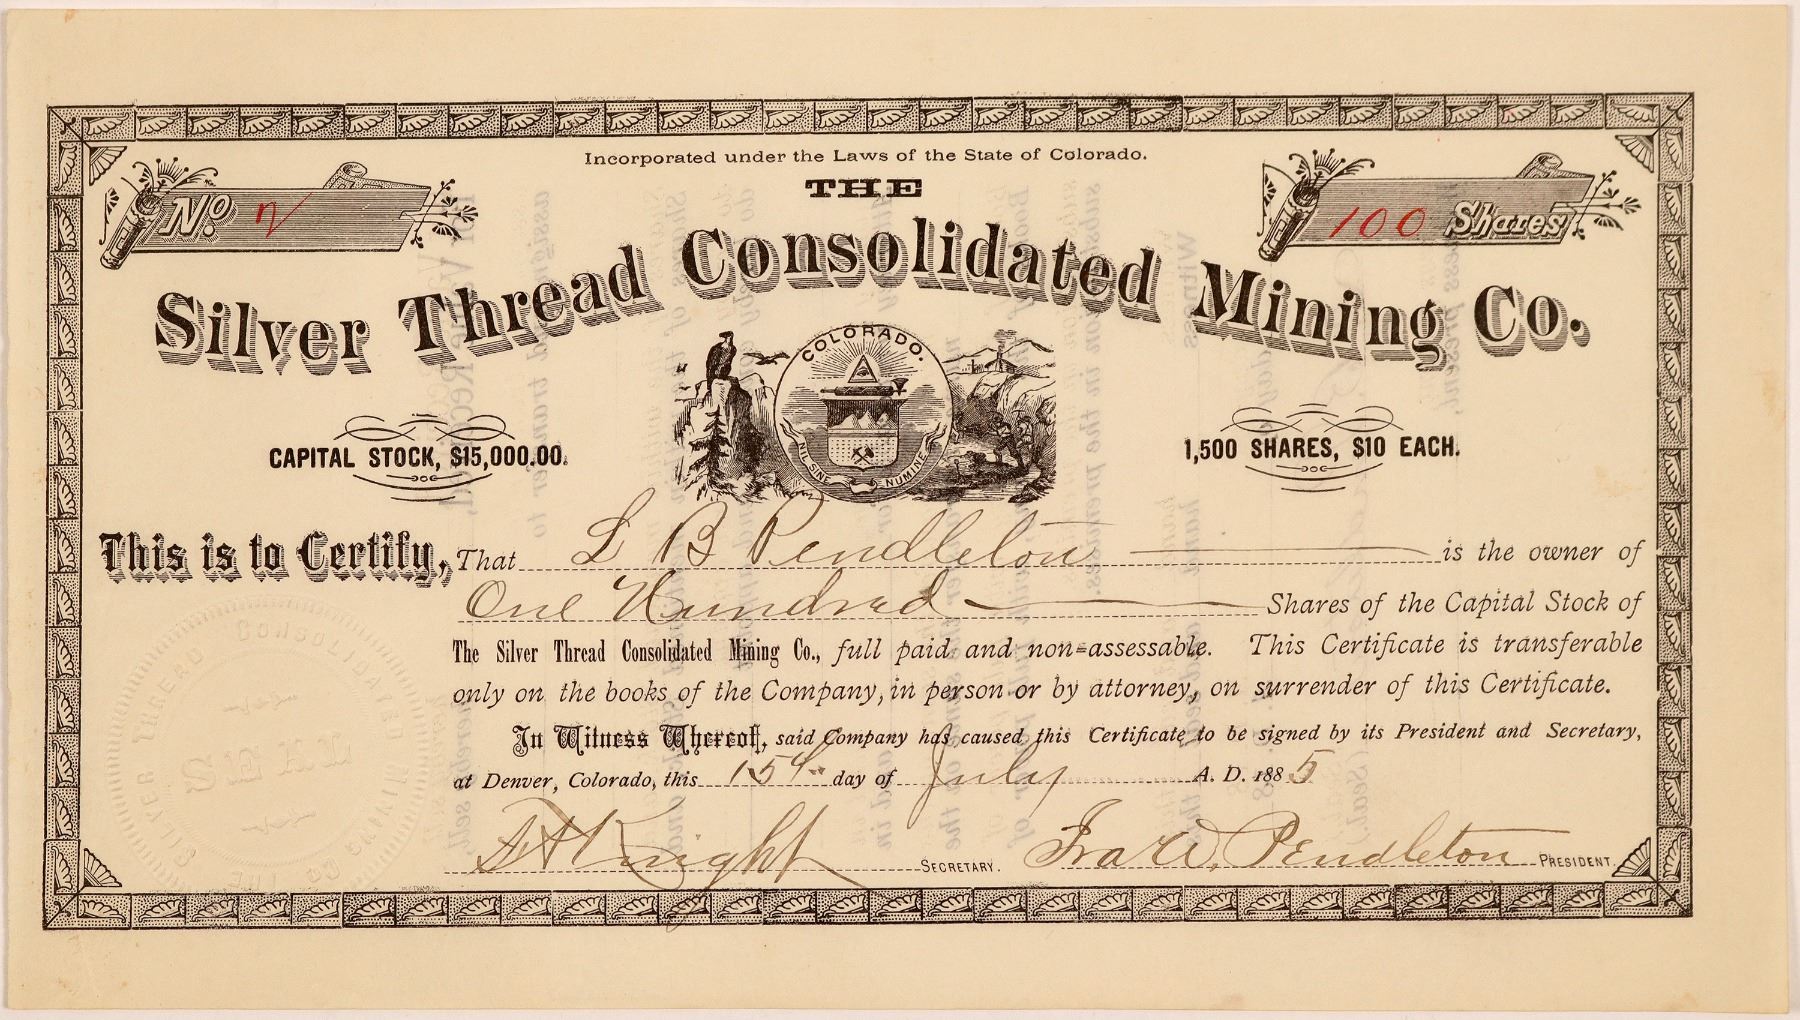 Incorporated under the Laws of the State of Colorado.
No. 2
100 Shares
THE
Silver Thread Consolidated Mining Co.
COLORADO.
NIL SINE NUMINE
CAPITAL STOCK, $15,000.00.
1,500 SHARES, $10 EACH.
This is to Certify, That L B Pendleton is the owner of
One Hundred Shares of the Capital Stock of
The Silver Thread Consolidated Mining Co., full paid and non-assessable. This Certificate is transferable
only on the books of the Company, in person or by attorney, on surrender of this Certificate.
In Witness Whereof, said Company has caused this Certificate to be signed by its President and Secretary,
at Denver, Colorado, this 15th day of July A. D. 1885
Knight SECRETARY. Ira W. Pendleton PRESIDENT.
THE SILVER THREAD CONSOLIDATED MINING CO
SEAL